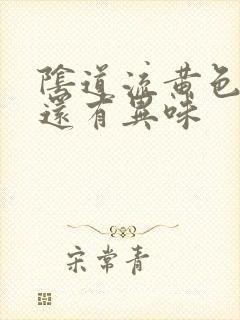 陰道流黃色
還有異味
宋常青